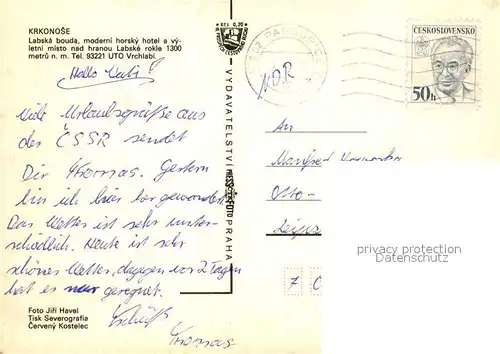 KRKONOŠE
Labská bouda, moderní horský hotel a vý-
letní místo nad hranou Labské rokle 1300
metrů n. m. Tel. 93221 UTO Vrchlabí.
Hallo
Viele Urlaubsgrüße aus
der ČSSR sendet
Dir Thomas. Gestern
bin ich hier
Das Wetter ist sehr unter-
schiedlich. Heute ist sehr
schönes Wetter, dagegen vor 2 Tagen
hat es nur geregnet.
Tschüß
Thomas
Foto Jiří Havel
Tisk Severografia
Červený Kostelec
VYDAVATELSTVÍ PRESSFOTO PRAHA
Kčs 0,20
ČESKOSLOVENSKO
50h
An
Manfred
Otto-
Leipzi
7
privacy protection
akpool.de